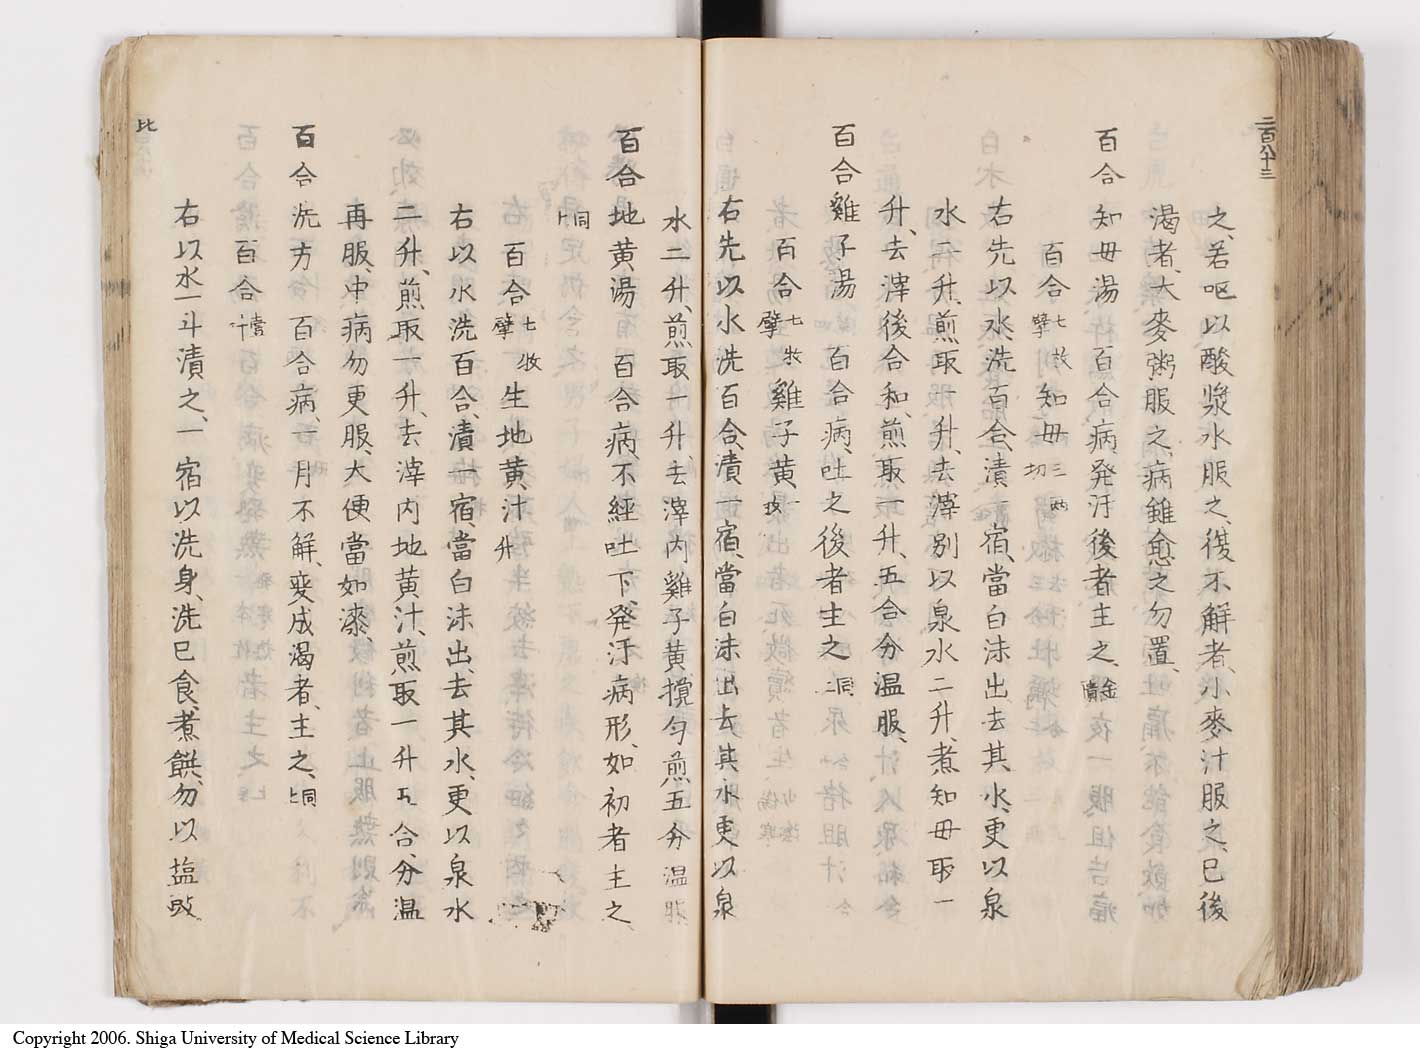 二百八十三
之、若呕以酸漿水服之、後不解者、小麦汁服之、已後
渴者、大麥粥服之、病雖愈之勿置、
百合知毋湯 百合病発汗後者主之、金匱
百合七枚擘 知毋三兩切
右先以水洗百合、漬一宿、當白沫出、去其水、更以泉
水二升、煎取一升、去滓、別以泉水二升、煮知毋取一
升、去滓後合和、煎取一升、五合分温服、
百合雞子湯 百合病、吐之後者主之 仝
百合七枚擘 雞子黄一枚
右先以水洗百合、漬一宿、當白沫出、去其水、更以泉
水二升、煎取一升、去滓内雞子黄攪匀煎五分温服
百合地黄湯 百合病、不經吐下、発汗病形、如初者主之
仝上
百合七枚擘 生地黄汁一升
右以水洗百合、漬一宿、當白沫出、去其水、更以泉水
二升、煎取一升、去滓内地黄汁、煎取一升五合、分温
再服、中病勿更服、大便當如漆、
百合洗方 百合病、一月不解、変成渴者、主之、仝上
百合一
右以水一斗漬之、一宿以洗身、洗已食、煮餅、勿以塩豉
比
Copyright 2006. Shiga University of Medical Science Library